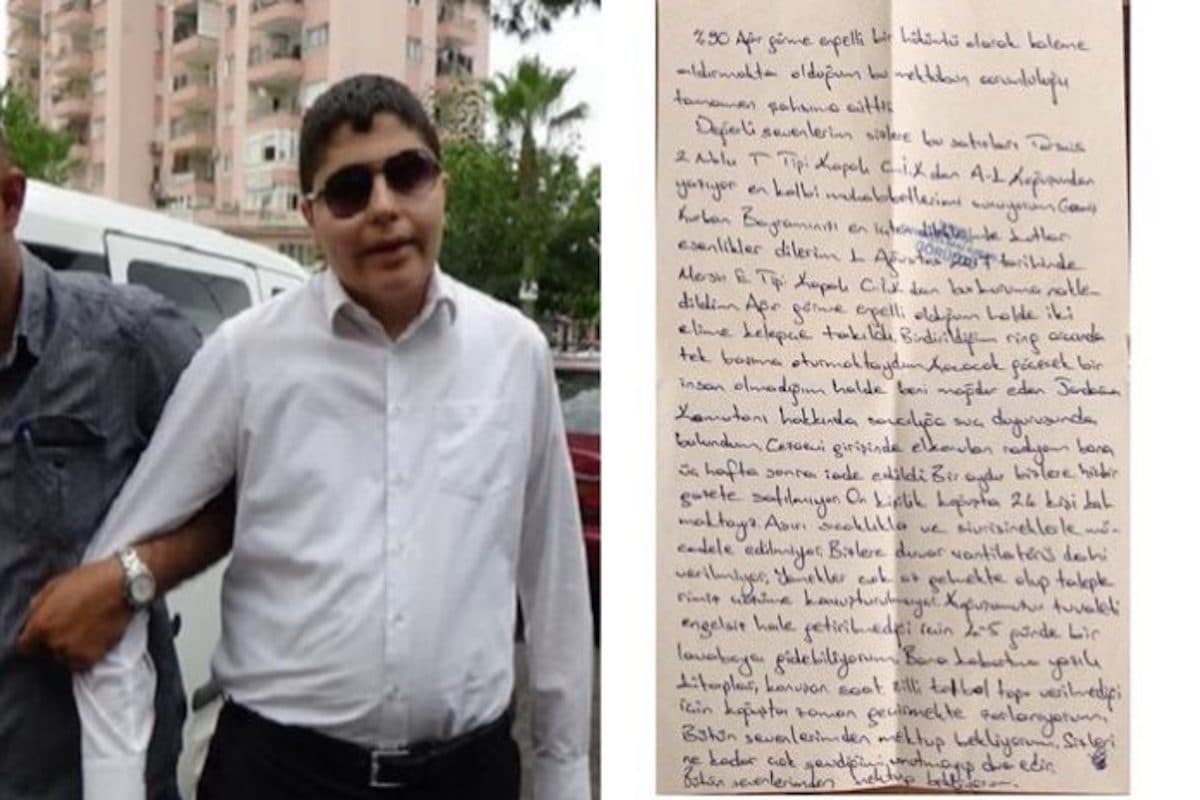 %90 Ağır görme engelli bir hükümlü olarak kaleme
aldırmakta olduğum bu mektubun sorumluluğu
tamamen şahsıma aittir.
Değerli sevenlerim sizlere bu satırları Tarsus
2 Nolu T Tipi Kapalı C.İ.K dan A-1 Koğuşundan
yazıyor en kalbi muhabbetlerimi sunuyorum Geçmiş
Kurban Bayramınızı en içten kutlar
esenlikler dilerim 1 Ağustos 2017 tarihinde
Mersin E Tipi Kapalı C.İ.K dan bu kuruma nakle
dildim Ağır görme engelli olduğum halde iki
elime kelepçe takıldı. Bindirildiğim ring aracında
tek başıma oturmaktaydım Kaçacak göçecek bir
insan olmadığım halde beni mağdur eden Jandarma
Komutanı hakkında savcılığa suç duyurusunda
bulundum. Cezaevi girişinde elkonulan radyom bana
üç hafta sonra iade edildi Bir aydır bizlere hiçbir
gazete satılmıyor. On kişilik koğuşta 24 kişi kal
maktayız. Aşırı sıcaklıkla ve sivrisineklerle mü-
cadele edilmiyor. Bizlere duvar vantilatörü dahi
verilmiyor, Yemekler çok az gelmekte olup talepler
rimiz üstüne konuşturulmuyor. Koğuşumuzun tuvaleti
engelsiz hale getirilmediği için 4-5 günde bir
lavaboya gidebiliyorum. Bana kabartma yazılı
kitaplar, konuşan saat zilli futbol topu verilmediği
için koğuşta zaman geçirmekte zorlanıyorum
Bütün sevenlerimden mektup bekliyorum. Sizleri
ne kadar çok sevdiğimi unutmayıp dua edin.
Bütün sevenlerimden mektup bekliyorum.
GÖRÜLDÜ